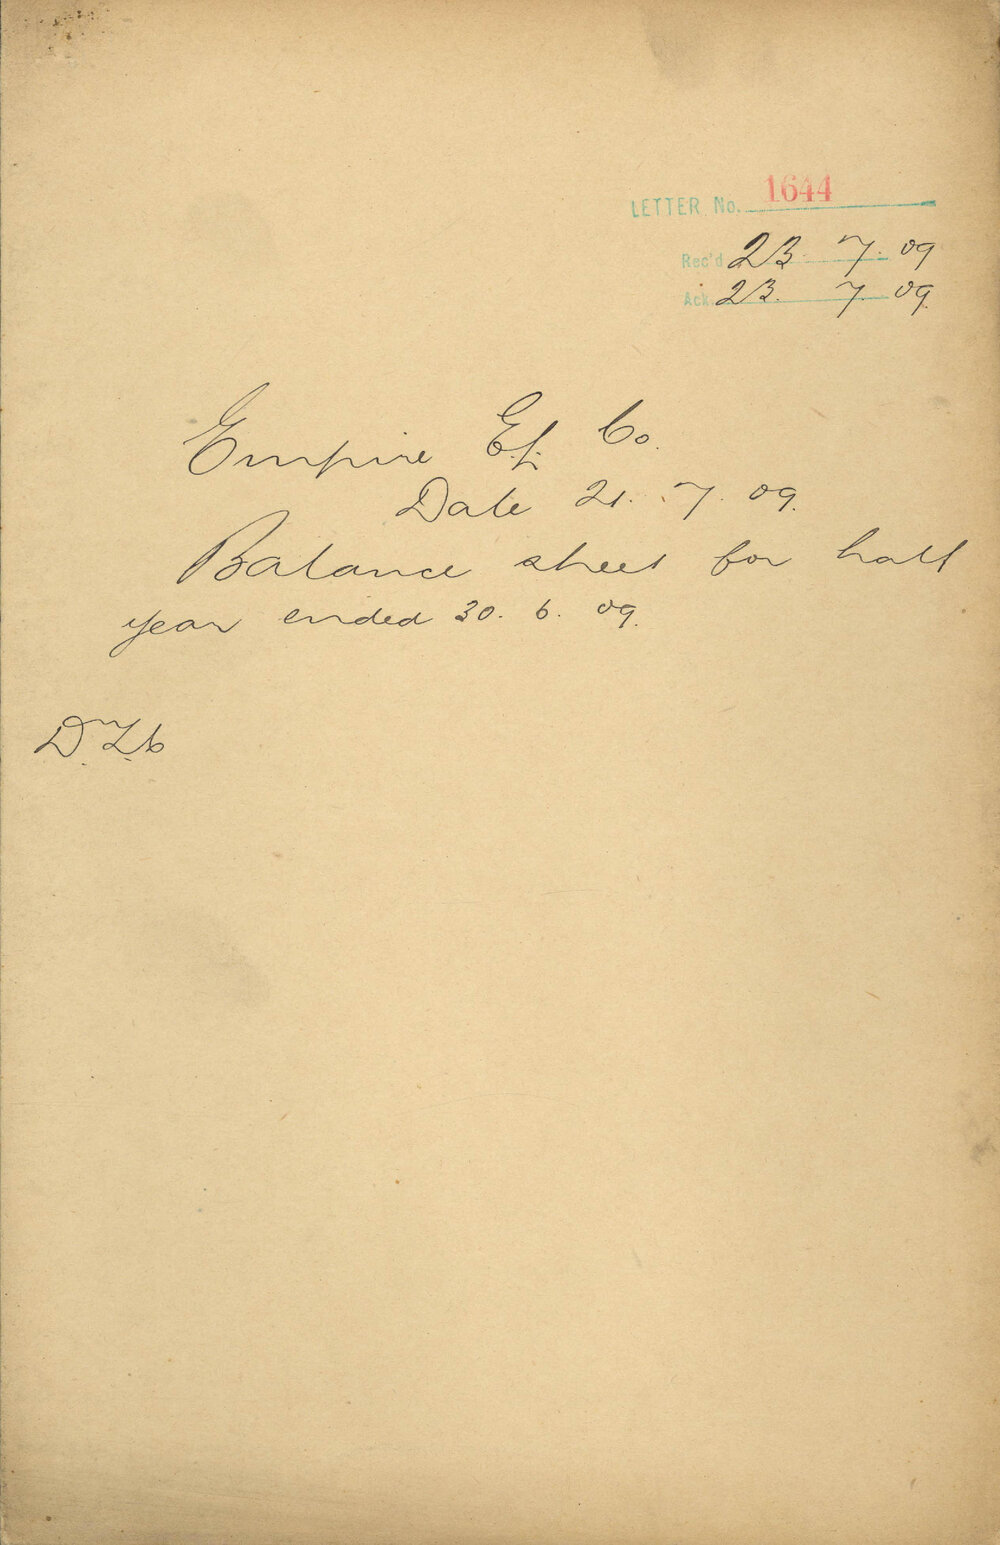 LETTER No. 1644
Rec'd 23. 7. 09
Ack. 23. 7. 09.
Empire Co.
Date 21. 7. 09.
Balance sheet for half
year ended 30. 6. 09.